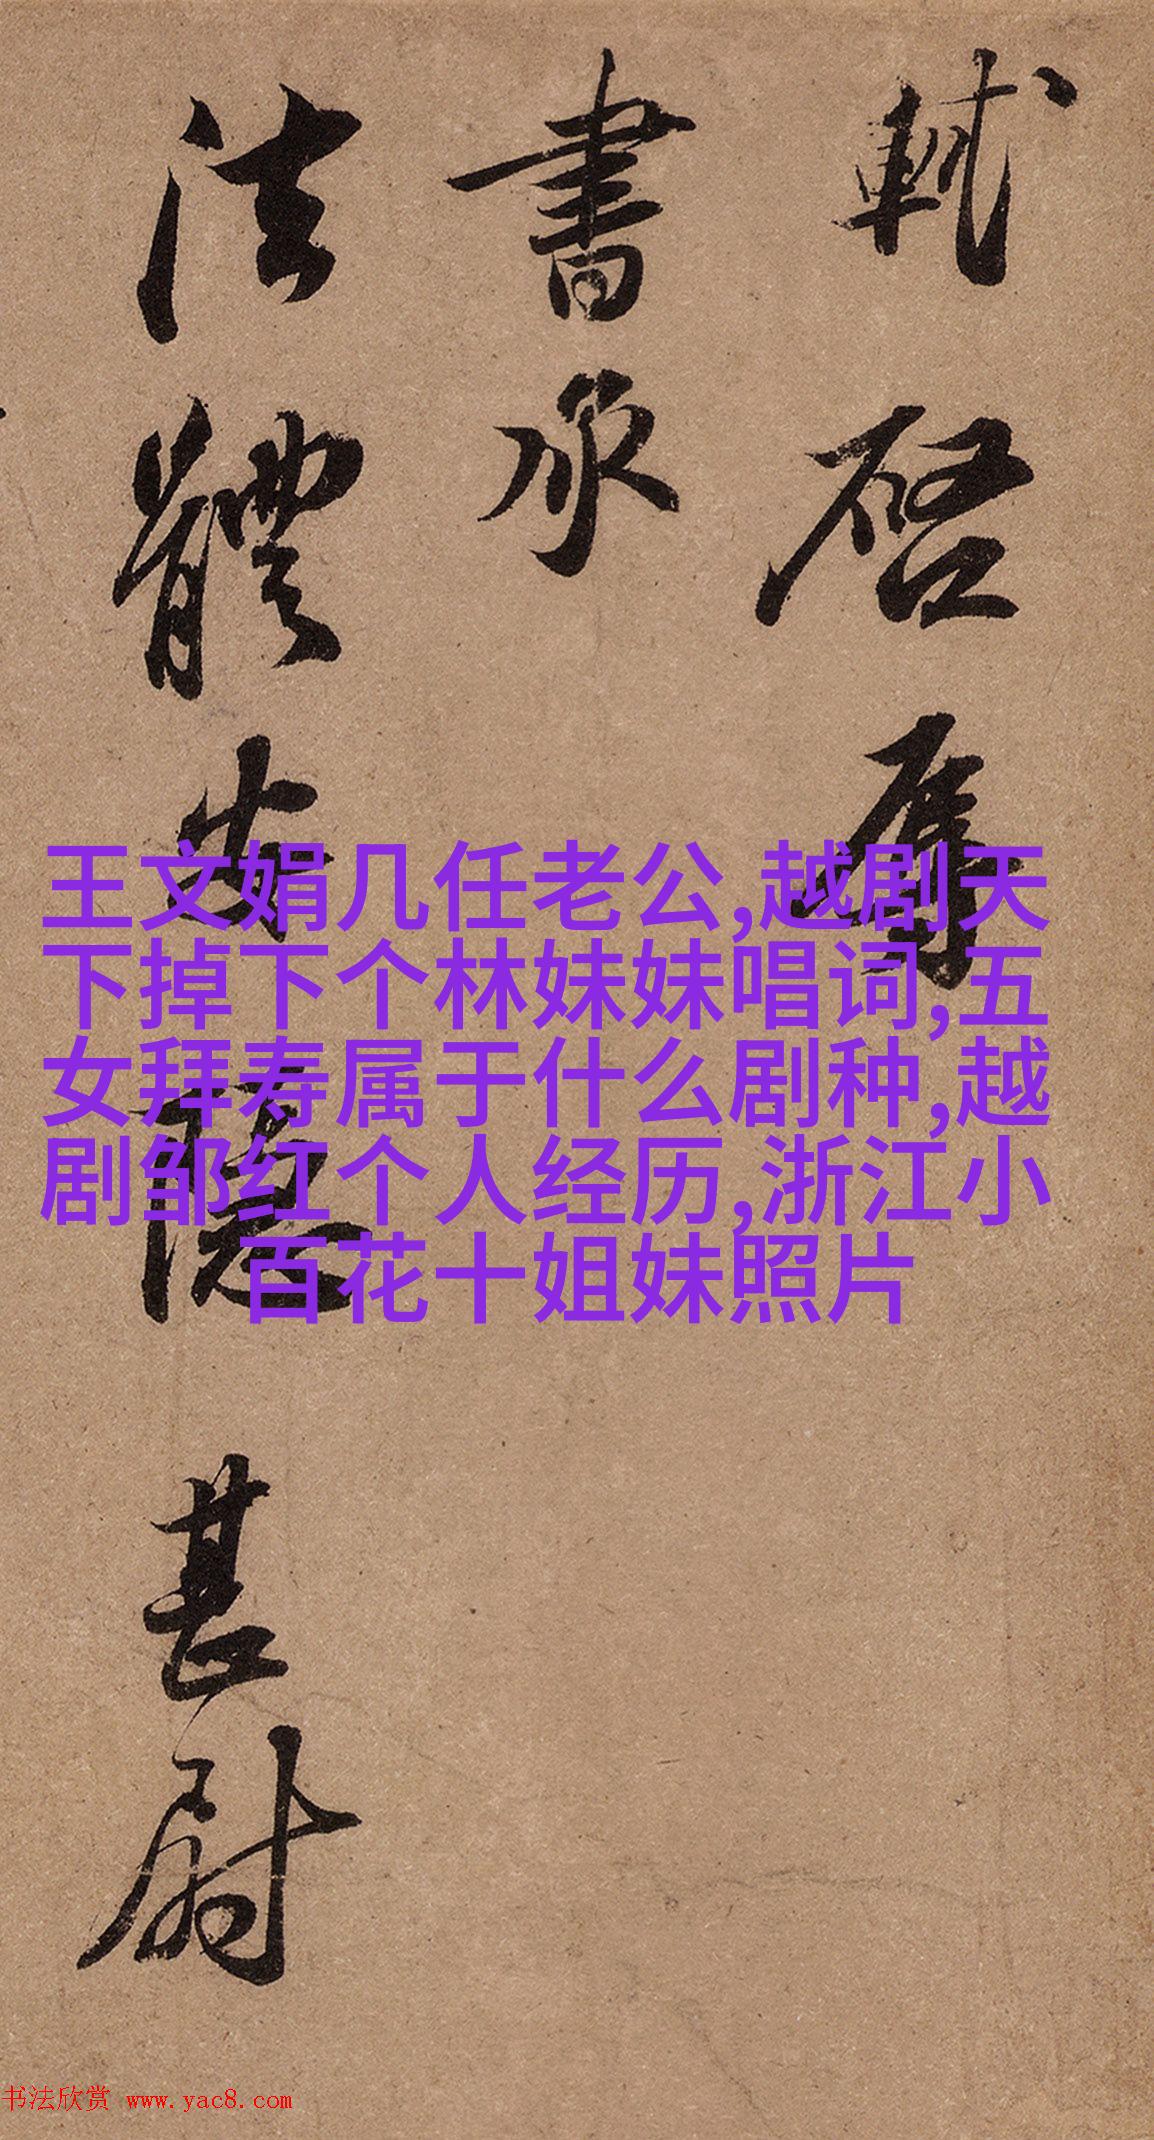 軾啓辱
書承
法體安隱甚尉
王文娟几任老公,越剧天
下掉下个林妹妹唱词,五
女拜寿属于什么剧种,越
剧邹红个人经历,浙江小
百花十姐妹照片
书法欣赏 www.yac8.com